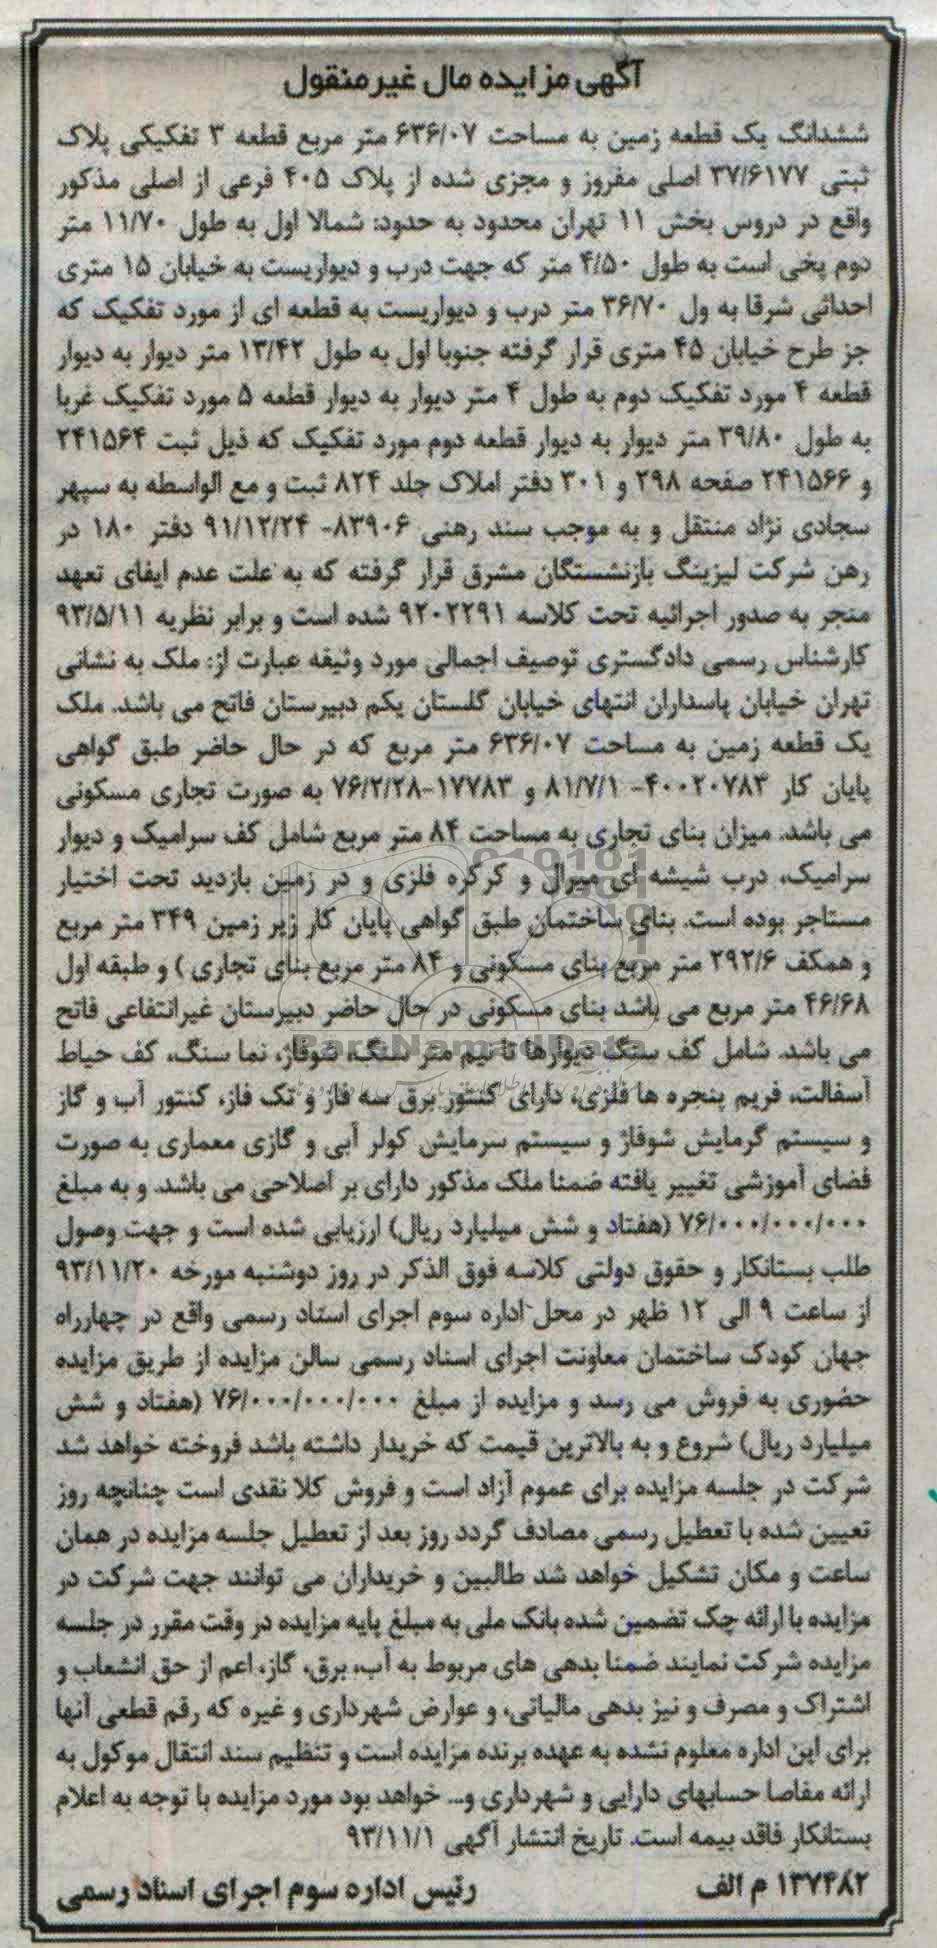 آگهی مزایده مال غیرمنقول
ششدانگ یک قطعه زمین به مساحت ۶۳۶/۰۷ متر مربع قطعه ۳ تفکیکی پلاک
ثبتی ۳۷/۶۱۷۷ اصلی مفروز و مجزی شده از پلاک ۴۰۵ فرعی از اصلی مذکور
واقع در دروس بخش ۱۱ تهران محدود به حدود: شمالا اول به طول ۱۱/۷۰ متر
دوم پخی است به طول ۴/۵۰ متر که جهت درب و دیواریست به خیابان ۱۵ متری
احداثی شرقا به ول ۳۶/۷۰ متر درب و دیواریست به قطعه ای از مورد تفکیک که
جز طرح خیابان ۴۵ متری قرار گرفته جنوبا اول به طول ۱۳/۴۲ متر دیوار به دیوار
قطعه ۴ مورد تفکیک دوم به طول ۴ متر دیوار به دیوار قطعه ۵ مورد تفکیک غربا
به طول ۳۹/۸۰ متر دیوار به دیوار قطعه دوم مورد تفکیک که ذیل ثبت ۲۴۱۵۶۴
و ۲۴۱۵۶۶ صفحه ۲۹۸ و ۳۰۱ دفتر املاک جلد ۸۲۴ ثبت و مع الواسطه به سپهر
سجادی نژاد منتقل و به موجب سند رهنی ۸۳۹۰۶- ۹۱/۱۲/۲۴ دفتر ۱۸۰ در
رهن شرکت لیزینگ بازنشستگان مشرق قرار گرفته که به علت عدم ایفای تعهد
منجر به صدور اجرائیه تحت کلاسه ۹۲۰۲۲۹۱ شده است و برابر نظریه ۹۳/۵/۱۱
کارشناس رسمی دادگستری توصیف اجمالی مورد وثیقه عبارت از: ملک به نشانی
تهران خیابان پاسداران انتهای خیابان گلستان یکم دبیرستان فاتح می باشد. ملک
یک قطعه زمین به مساحت ۶۳۶/۰۷ متر مربع که در حال حاضر طبق گواهی
پایان کار ۴۰۰۲۰۷۸۳- ۸۱/۷/۱ و ۱۷۷۸۳-۷۶/۲/۲۸ به صورت تجاری مسکونی
می باشد. میزان بنای تجاری به مساحت ۸۴ متر مربع شامل کف سرامیک و دیوار
سرامیک، درب شیشه ای میرال و کرکره فلزی و در زمین بازدید تحت اختیار
مستاجر بوده است. بنای ساختمان طبق گواهی پایان کار زیر زمین ۳۴۹ متر مربع
و همکف ۲۹۲/۶ متر مربع بنای مسکونی و ۸۴ متر مربع بنای تجاری ) و طبقه اول
۴۶/۶۸ متر مربع می باشد بنای مسکونی در حال حاضر دبیرستان غیرانتفاعی فاتح
می باشد. شامل کف سنگ دیوارها تا نیم متر سنگ، شوفاژ، نما سنگ، کف حیاط
آسفالت، فریم پنجره ها فلزی، دارای کنتور برق سه فاز و تک فاز، کنتور آب و گاز
و سیستم گرمایش شوفاژ و سیستم سرمایش کولر آبی و گازی معماری به صورت
فضای آموزشی تغییر یافته ضمنا ملک مذکور دارای بر اصلاحی می باشد. و به مبلغ
۷۶/۰۰۰/۰۰۰/۰۰۰ (هفتاد و شش میلیارد ریال) ارزیابی شده است و جهت وصول
طلب بستانکار و حقوق دولتی کلاسه فوق الذکر در روز دوشنبه مورخه ۹۳/۱۱/۲۰
از ساعت ۹ الی ۱۲ ظهر در محل اداره سوم اجرای اسناد رسمی واقع در چهارراه
جهان کودک ساختمان معاونت اجرای اسناد رسمی سالن مزایده از طریق مزایده
حضوری به فروش می رسد و مزایده از مبلغ ۷۶/۰۰۰/۰۰۰/۰۰۰ (هفتاد و شش
میلیارد ریال) شروع و به بالاترین قیمت که خریدار داشته باشد فروخته خواهد شد
شرکت در جلسه مزایده برای عموم آزاد است و فروش کلا نقدی است چنانچه روز
تعیین شده با تعطیل رسمی مصادف گردد روز بعد از تعطیل جلسه مزایده در همان
ساعت و مکان تشکیل خواهد شد طالبین و خریداران می توانند جهت شرکت در
مزایده با ارائه چک تضمین شده بانک ملی به مبلغ پایه مزایده در وقت مقرر در جلسه
مزایده شرکت نمایند ضمنا بدهی های مربوط به آب، برق، گاز، اعم از حق انشعاب و
اشتراک و مصرف و نیز بدهی مالیاتی، و عوارض شهرداری و غیره که رقم قطعی آنها
برای این اداره معلوم نشده به عهده برنده مزایده است و تنظیم سند انتقال موکول به
ارائه مفاصا حسابهای دارایی و شهرداری و... خواهد بود مورد مزایده با توجه به اعلام
بستانکار فاقد بیمه است. تاریخ انتشار آگهی ۹۳/۱۱/۱
۱۳۷۴۸۲ م الف رئیس اداره سوم اجرای اسناد رسمی
ParsNamadData